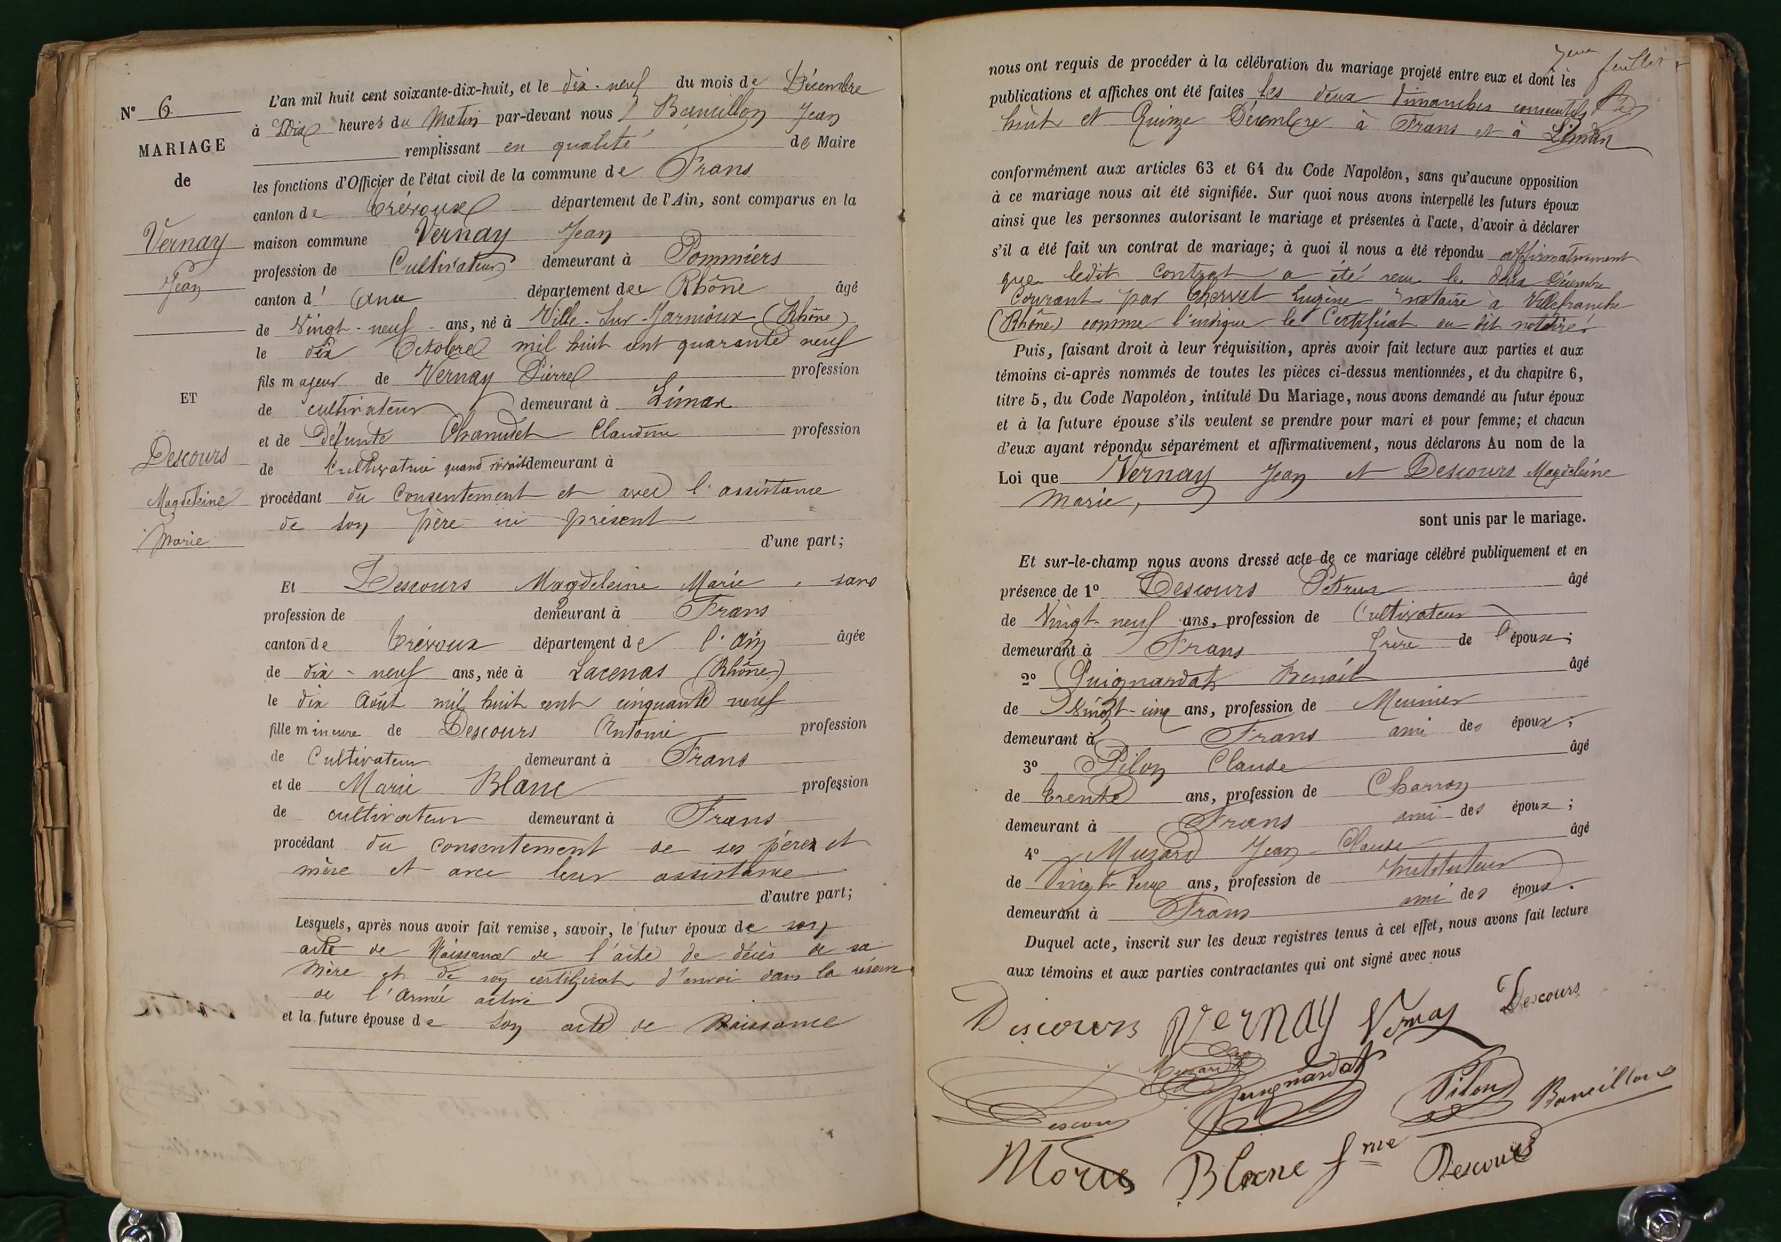 N° 6
MARIAGE
de
Vernay
Jean
ET
Descours
Magdeleine
Marie
L'an mil huit cent soixante-dix-huit, et le dix-neuf du mois de Décembre
à Dix heures du Matin par-devant nous Jean
remplissant en qualité de Maire
les fonctions d'Officier de l'état civil de la commune de Frans
canton de Trévoux département de l'Ain, sont comparus en la
maison commune Vernay Jean
profession de Cultivateur demeurant à Pommiers
canton d' Anse département de Rhône âgé
de Vingt-neuf ans, né à Ville-Sur-Jarnioux (Rhône)
le dix Octobre mil huit cent quarante neuf
fils majeur de Vernay Pierre profession
de cultivateur demeurant à Limas
et de Défunte Claudine profession
de Cultivatrice quand vivait demeurant à
procédant du Consentement et avec l'assistance
de son père ici présent
d'une part;
Et Descours Magdeleine Marie, sans
profession de demeurant à Frans
canton de Trévoux département de l'Ain âgée
de dix-neuf ans, née à Lacenas (Rhône)
le dix Août mil huit cent cinquante neuf
fille mineure de Descours Antoine profession
de Cultivateur demeurant à Frans
et de Marie Blanc profession
de cultivateur demeurant à Frans
procédant du consentement de ses père et
mère et avec leur assistance
d'autre part;
Lesquels, après nous avoir fait remise, savoir, le futur époux de son
acte de Naissance de l'acte de décès de sa
mère et de son certificat d'envoi dans la réserve
de l'Armée active
et la future épouse de son acte de Naissance
7eme feuillet
nous ont requis de procéder à la célébration du mariage projeté entre eux et dont les
publications et affiches ont été faites les deux dimanches consécutifs
huit et Quinze Décembre à Frans et à Limas
conformément aux articles 63 et 64 du Code Napoléon, sans qu'aucune opposition
à ce mariage nous ait été signifiée. Sur quoi nous avons interpellé les futurs époux
ainsi que les personnes autorisant le mariage et présentes à l'acte, d'avoir à déclarer
s'il a été fait un contrat de mariage; à quoi il nous a été répondu affirmativement
que ledit Contrat a été reçu le Décembre
Courant par Chervet Eugène notaire a Villefranche
(Rhône) comme l'indique le Certificat du dit notaire
Puis, faisant droit à leur réquisition, après avoir fait lecture aux parties et aux
témoins ci-après nommés de toutes les pièces ci-dessus mentionnées, et du chapitre 6,
titre 5, du Code Napoléon, intitulé Du Mariage, nous avons demandé au futur époux
et à la future épouse s'ils veulent se prendre pour mari et pour femme; et chacun
d'eux ayant répondu séparément et affirmativement, nous déclarons Au nom de la
Loi que Vernay Jean et Descours Magdeleine
Marie,
sont unis par le mariage.
Et sur-le-champ nous avons dressé acte de ce mariage célébré publiquement et en
présence de 1° Descours Pétrus âgé
de Vingt-neuf ans, profession de Cultivateur
demeurant à Frans frère de l'épouse;
2° Guignardat Benoît âgé
de Vingt-cinq ans, profession de Meunier
demeurant à Frans ami des époux;
3° Pilon Claude âgé
de trente ans, profession de Charron
demeurant à Frans ami des époux;
4° Muzard Jean Claude âgé
de Vingt deux ans, profession de Instituteur
demeurant à Frans ami des époux.
Duquel acte, inscrit sur les deux registres tenus à cet effet, nous avons fait lecture
aux témoins et aux parties contractantes qui ont signé avec nous
Descours Vernay Vernay Descours
Muzard
Descours Guignardat Pilon
Marie Blanc fme Descours